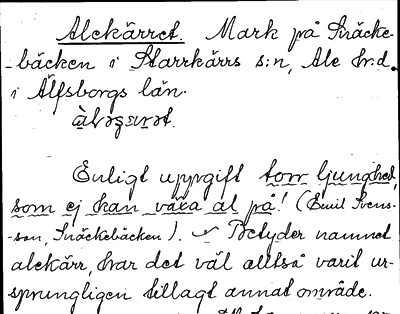 Alekärret. Mark på Snäcke-
bäcken i Starrkärrs s:n, Ale hr.d.
i Älfsborgs län.
Enligt uppgift torr ljunghed,
som ej kan växa al på! (Emil Svens-
son, Snäckebäcken). Betyder namnet
alekärr, har det väl alltså varit ur-
sprungligen tillagt annat område.